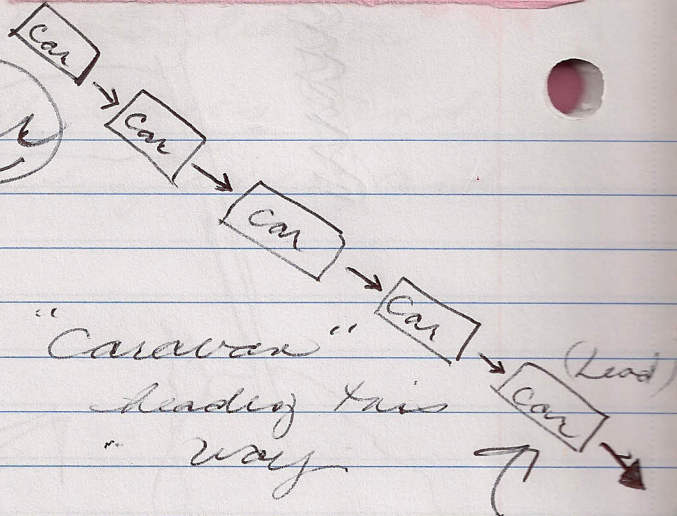 Car
Car
Car
Car
(Lead)
Car
"Caravan"
heading this
way